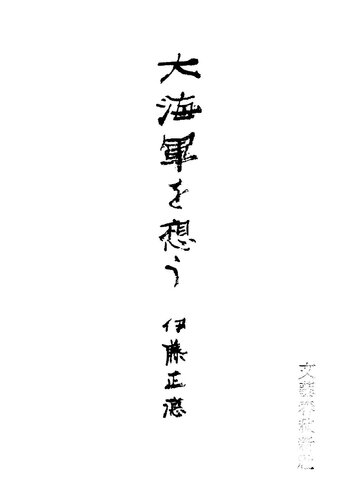 大海軍を想う
伊藤正德
文藝春秋新社